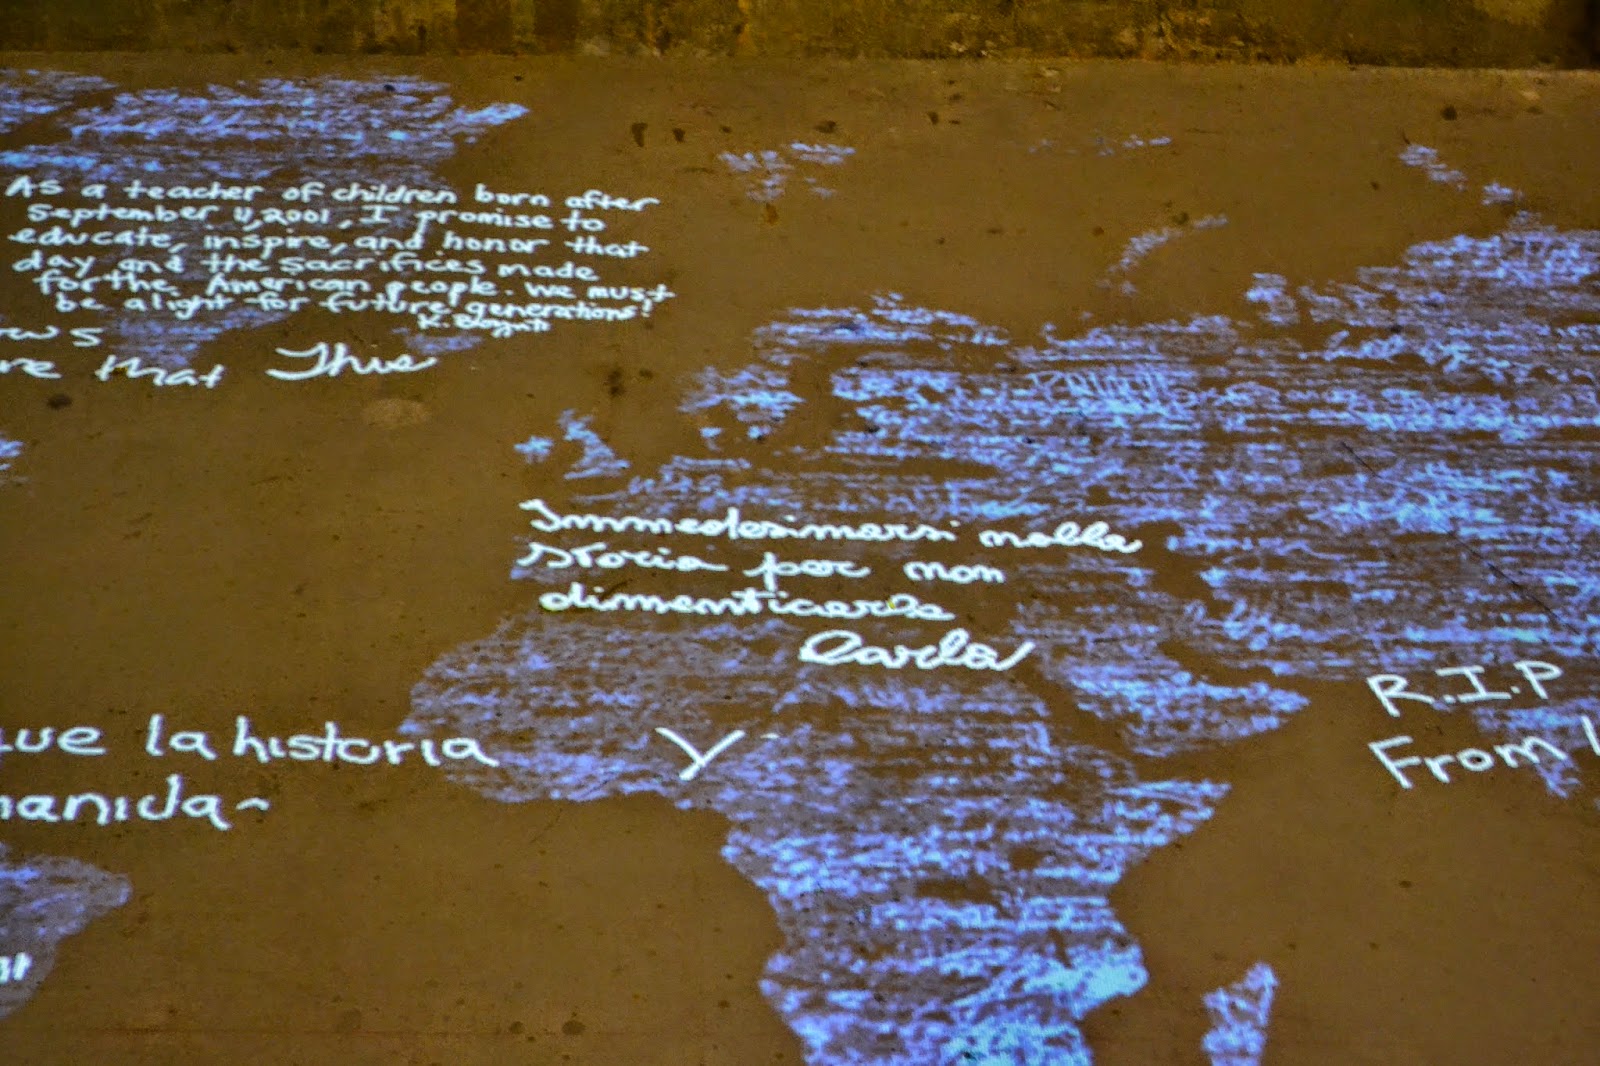 As a teacher of children born after
September 11, 2001, I promise to
educate, inspire, and honor that
day and the sacrifices made
for the American people. We must
be a light for future generations!
K.
ews
re that This
Immedesimarsi nella
storia per non
dimenticarla
Carla
ue la historia Y
manida~
R.I.P
From